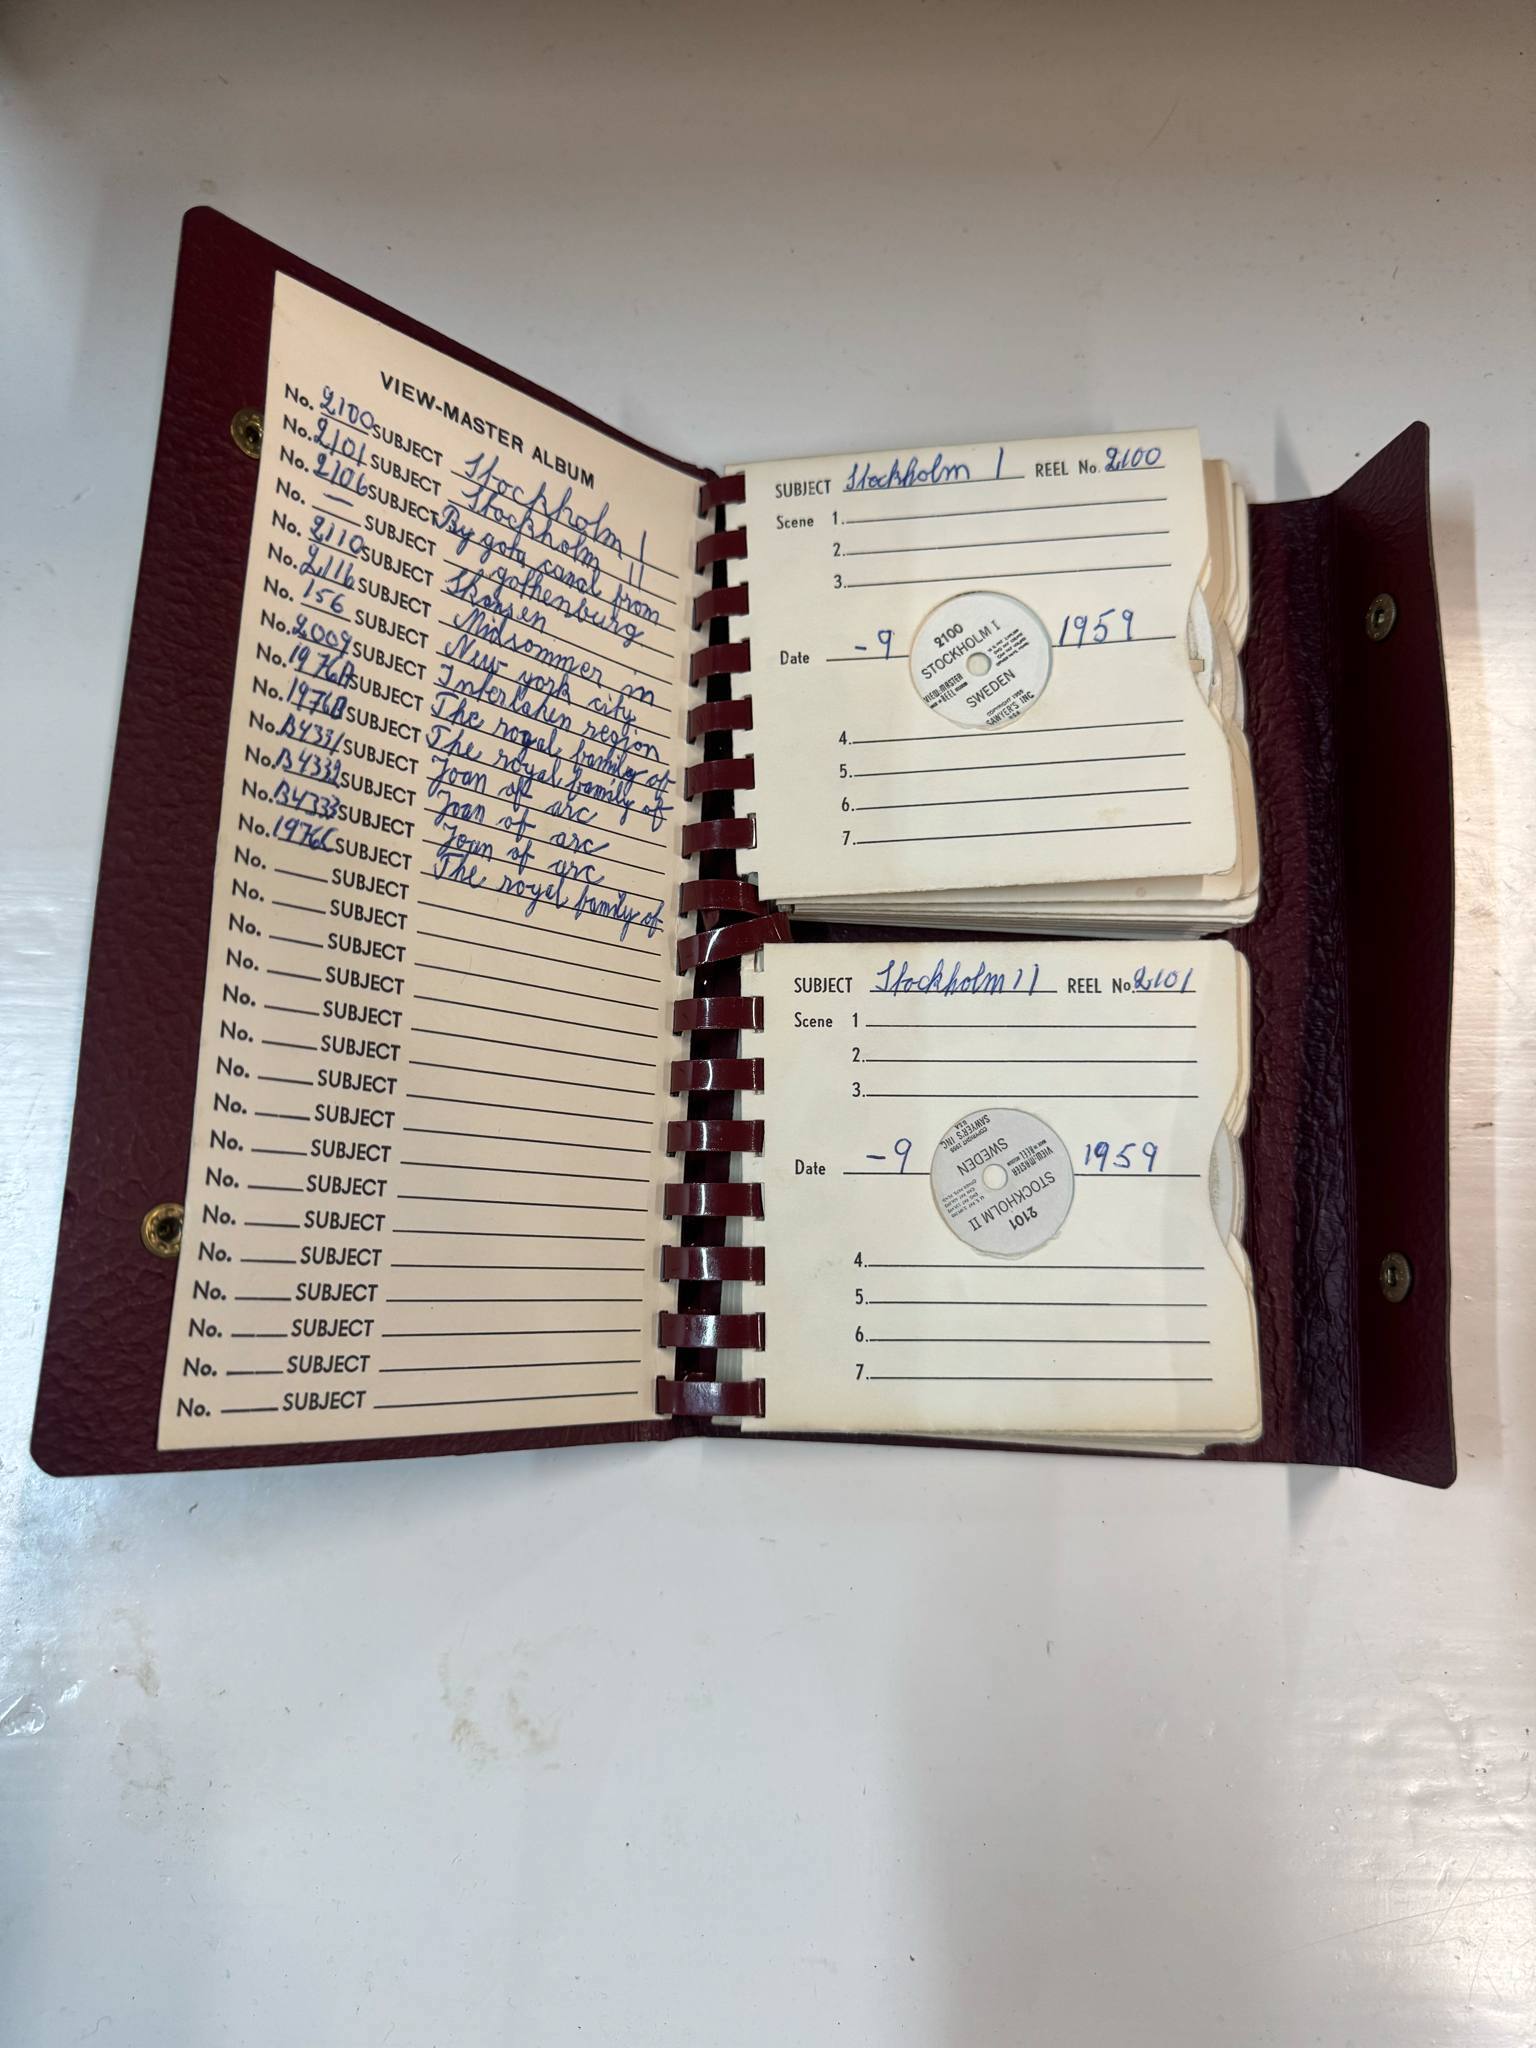 VIEW-MASTER ALBUM
No. 2100 SUBJECT Stockholm I
No. 2101 SUBJECT Stockholm II
No. 2106 SUBJECT By gota canal from
No. — SUBJECT gothenburg
No. 2110 SUBJECT Skansen
No. 2116 SUBJECT Midsommer in
No. 156 SUBJECT New york city
No. 2009 SUBJECT Interlaken region
No. 1976A SUBJECT The royal family of
No. 1976B SUBJECT The royal family of
No. B4331 SUBJECT Joan of arc
No. B4332 SUBJECT Joan of arc
No. B4333 SUBJECT Joan of arc
No. 1976C SUBJECT The royal family of
No. SUBJECT
No. SUBJECT
No. SUBJECT
No. SUBJECT
No. SUBJECT
No. SUBJECT
No. SUBJECT
No. SUBJECT
No. SUBJECT
No. SUBJECT
No. SUBJECT
No. SUBJECT
No. SUBJECT
No. SUBJECT
No. SUBJECT
No. SUBJECT
SUBJECT Stockholm I REEL No. 2100
Scene 1.
2.
3.
Date -9 1959
2100
STOCKHOLM I
VIEW-MASTER
SWEDEN
COPYRIGHT 1955
SAWYER'S INC
U.S.A.
4.
5.
6.
7.
SUBJECT Stockholm II REEL No. 2101
Scene 1
2.
3.
Date -9 1959
2101
STOCKHOLM II
VIEW-MASTER
SWEDEN
COPYRIGHT 1955
SAWYER'S INC
U.S.A.
4.
5.
6.
7.